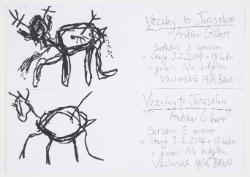 Vezelay to Jerusalem
Andrew Gilbert
Setkání s autorem
v úterý 3.2.2004 v 18 hodin
v galerii Na bidýlku
Václavská 14/16 BRNO
Vezelay to Jerusalem
Andrew Gilbert
Setkání s autorem
v úterý 3.2.2004 v 18 hodin
v galerii Na bidýlku
Václavská 14/16, BRNO